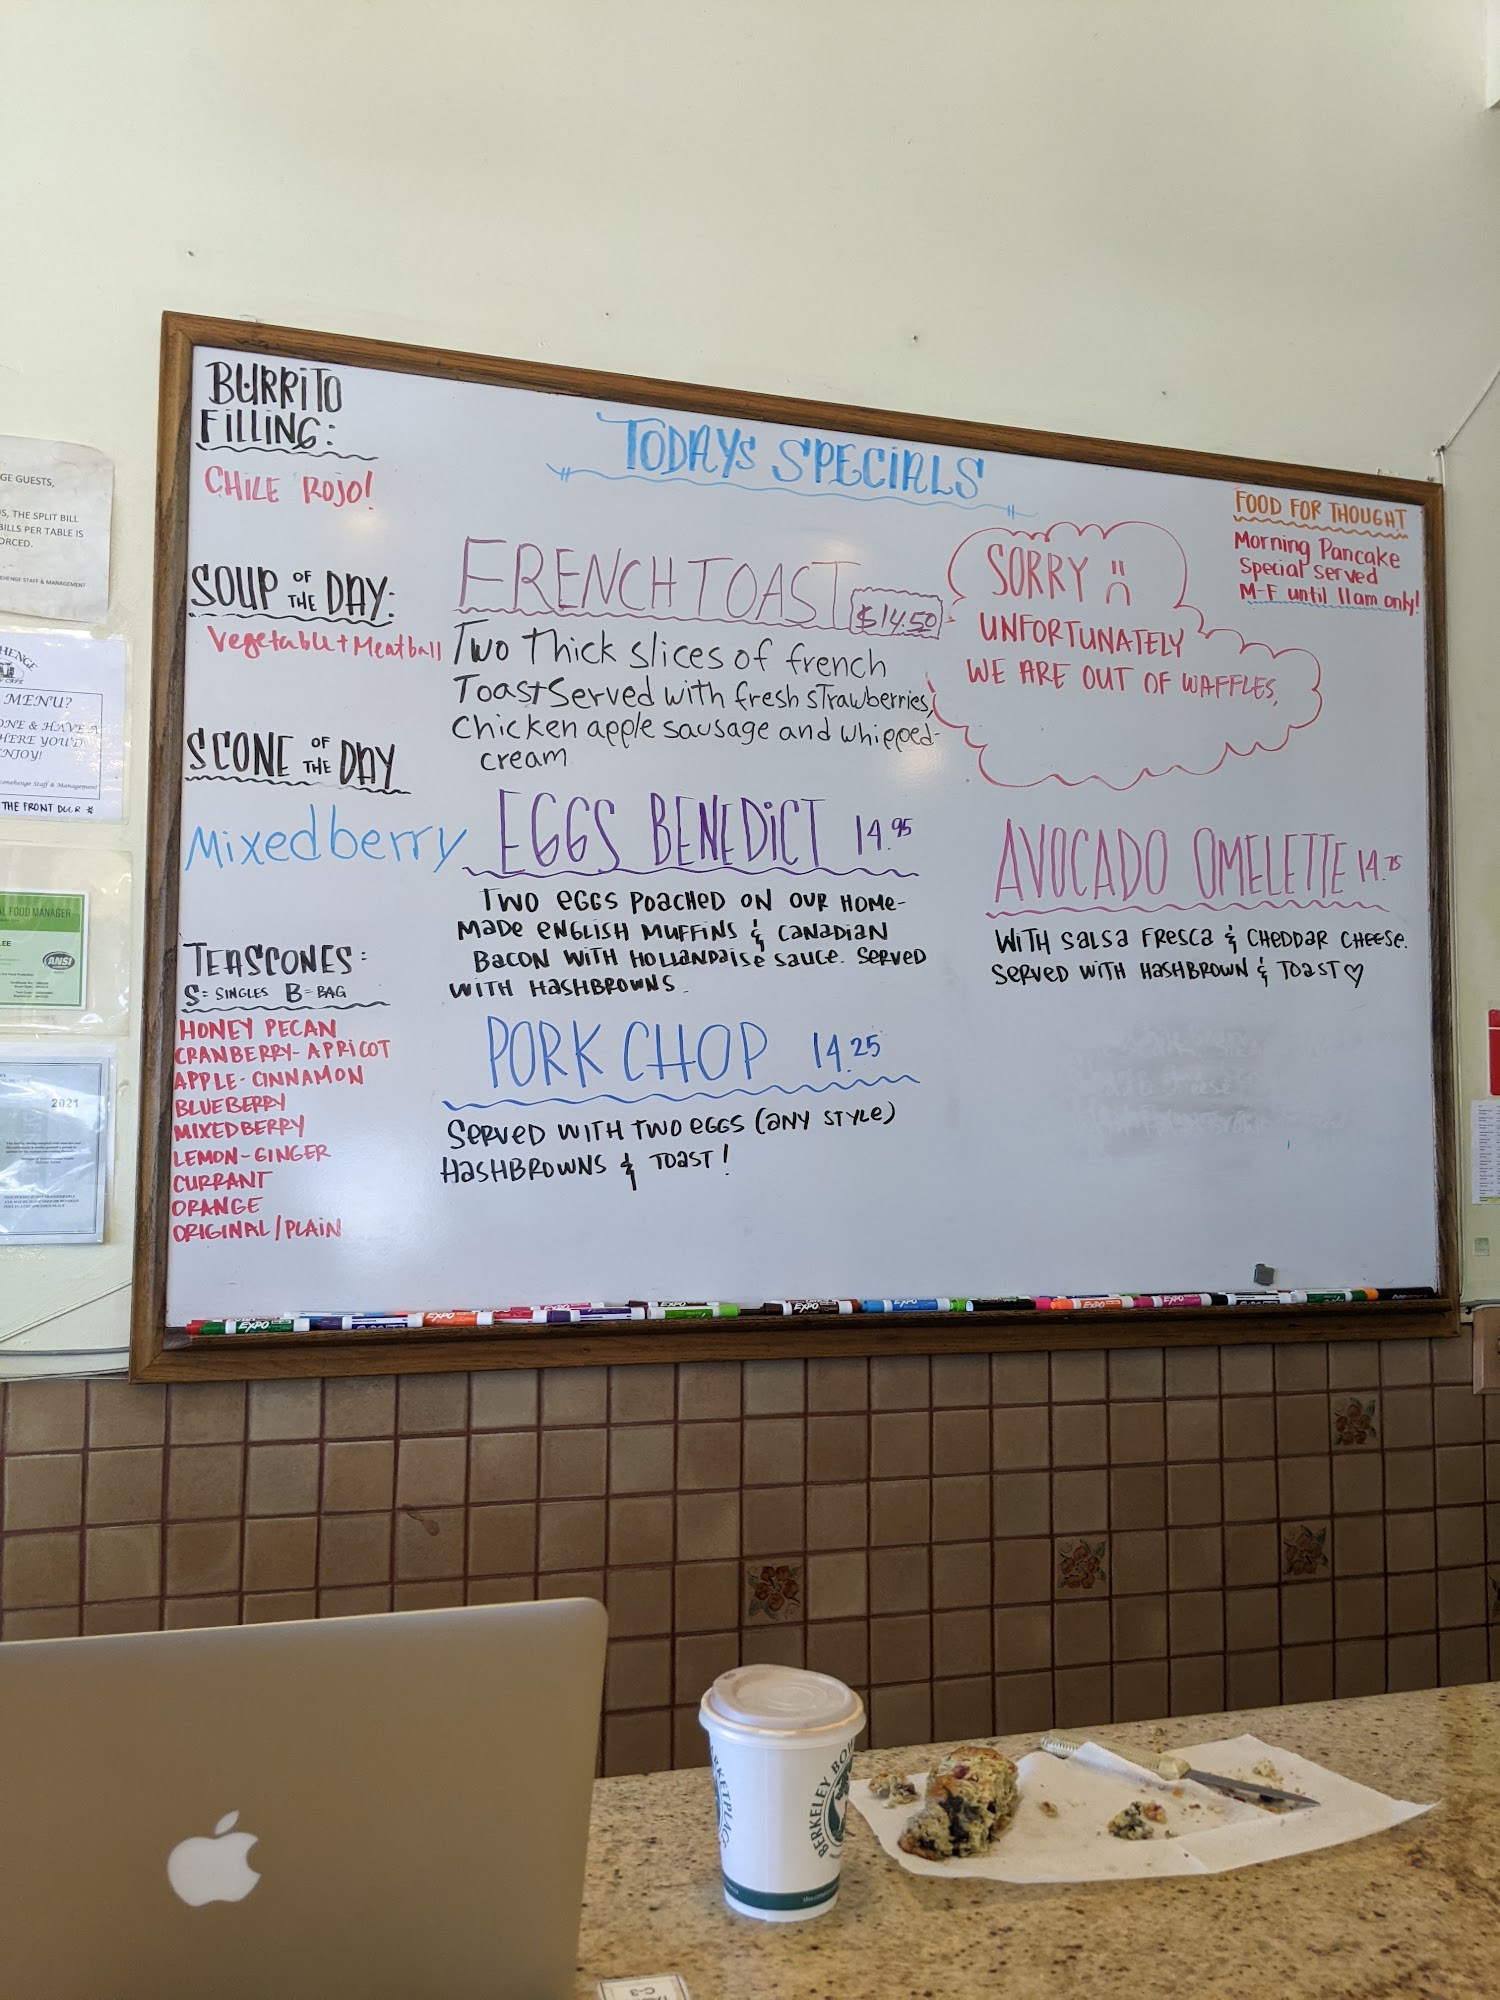 BURRITO
FILLING:
CHILE ROJO!
SOUP OF THE DAY:
Vegetable + Meatball
SCONE OF THE DAY
Mixedberry
TEASCONES:
S= SINGLES B= BAG
HONEY PECAN
CRANBERRY-APRICOT
APPLE-CINNAMON
BLUEBERRY
MIXEDBERRY
LEMON-GINGER
CURRANT
ORANGE
ORIGINAL/PLAIN
TODAYS SPECIALS
FRENCH TOAST $14.50
Two Thick slices of french
Toast served with fresh strawberries,
Chicken apple sausage and whipped-
cream
EGGS BENEDICT 14.95
TWO EGGS POACHED ON OUR HOME-
MADE ENGLISH MUFFINS & CANADIAN
BACON WITH HOLLANDAISE SAUCE. SERVED
WITH HASHBROWNS.
PORK CHOP 14.25
SERVED WITH TWO EGGS (ANY STYLE)
HASHBROWNS & TOAST!
SORRY
UNFORTUNATELY
WE ARE OUT OF WAFFLES.
FOOD FOR THOUGHT
Morning Pancake
Special served
M-F until 11am only!
AVOCADO OMELETTE 14.75
WITH SALSA FRESCA & CHEDDAR CHEESE.
SERVED WITH HASHBROWN & TOAST
GE GUESTS,
S, THE SPLIT BILL
BILLS PER TABLE IS
ORCED.
EHENGE STAFF & MANAGEMENT
HENGE
MENU?
ONE & HAVE A
HERE YOU'D
ENJOY!
Stonehenge Staff & Management
THE FRONT DOOR
AL FOOD MANAGER
LEE
ANSI
2021
EXPO
EXPO
EXPO
EXPO
EXPO
BERKELEY BOW
ARKETPLAC